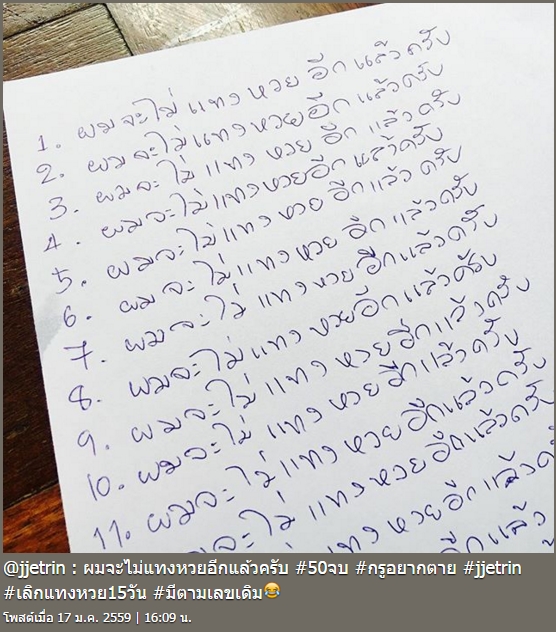 1. ผมจะไม่แทงหวยอีกแล้วครับ
2. ผมจะไม่แทงหวยอีกแล้วครับ
3. ผมจะไม่แทงหวยอีกแล้วครับ
4. ผมจะไม่แทงหวยอีกแล้วครับ
5. ผมจะไม่แทงหวยอีกแล้วครับ
6. ผมจะไม่แทงหวยอีกแล้วครับ
7. ผมจะไม่แทงหวยอีกแล้วครับ
8. ผมจะไม่แทงหวยอีกแล้วครับ
9. ผมจะไม่แทงหวยอีกแล้วครับ
10. ผมจะไม่แทงหวยอีกแล้วครับ
11. ผมจะไม่แทงหวยอีกแล้วครับ
จะไม่แทงหวยอีกแล้วครับ
แทงหวยอีกแล้วค
อีกแล้ว
@jjetrin : ผมจะไม่แทงหวยอีกแล้วครับ #50จบ #กรูอยากตาย #jjetrin
#เลิกแทงหวย15วัน #มีตามเลขเดิม😂
โพสต์เมื่อ 17 ม.ค. 2559 | 16:09 น.